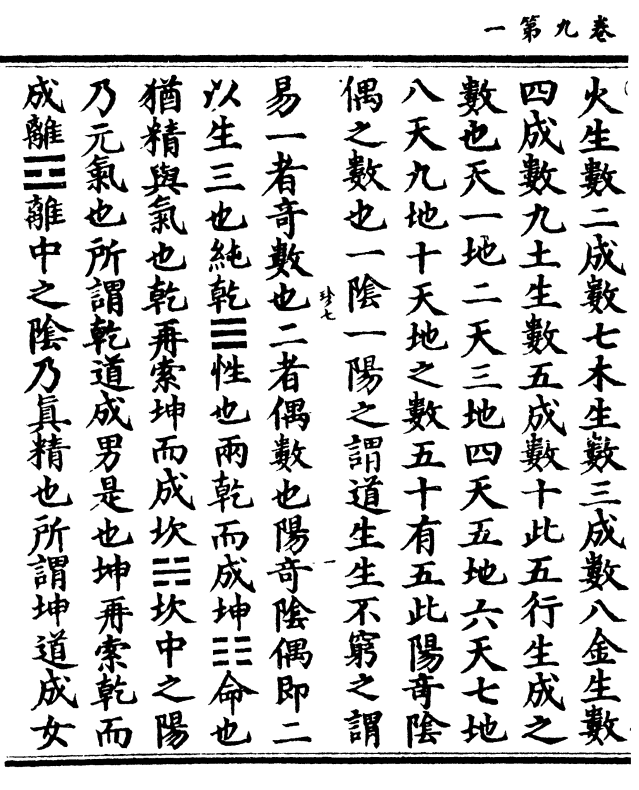 卷九第一
火生數二成數七木生數三成數八金生數
四成數九土生數五成數十此五行生成之
數也天一地二天三地四天五地六天七地
八天九地十天地之數五十有五此陽奇陰
偶之數也一陰一陽之謂道生生不窮之謂
珍七
易一者奇數也二者偶數也陽奇陰偶即二
以生三也純乾☰性也兩乾而成坤☷命也
猶精與氣也乾再索坤而成坎☵坎中之陽
乃元氣也所謂乾道成男是也坤再索乾而
成離☲離中之陰乃真精也所謂坤道成女